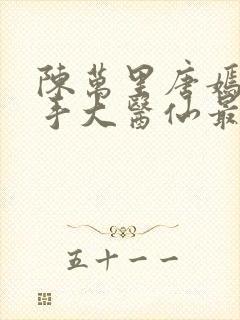 陳萬里唐嫣
手大醫仙最
五十一一